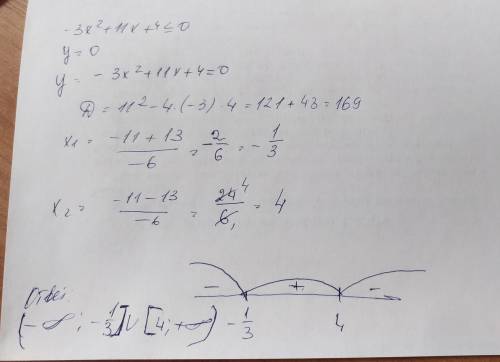 -3x²+11x+4≤0
y=0
y= -3x²+11x+4=0
D=11²-4·(-3)·4=121+43=169
x₁= (-11+13)/(-6) = -2/6 = -1/3
x₂= (-11-13)/(-6) = 24/6 = 4
- + -
-1/3 4
Ответ:
(-∞; -1/3] U [4; +∞)